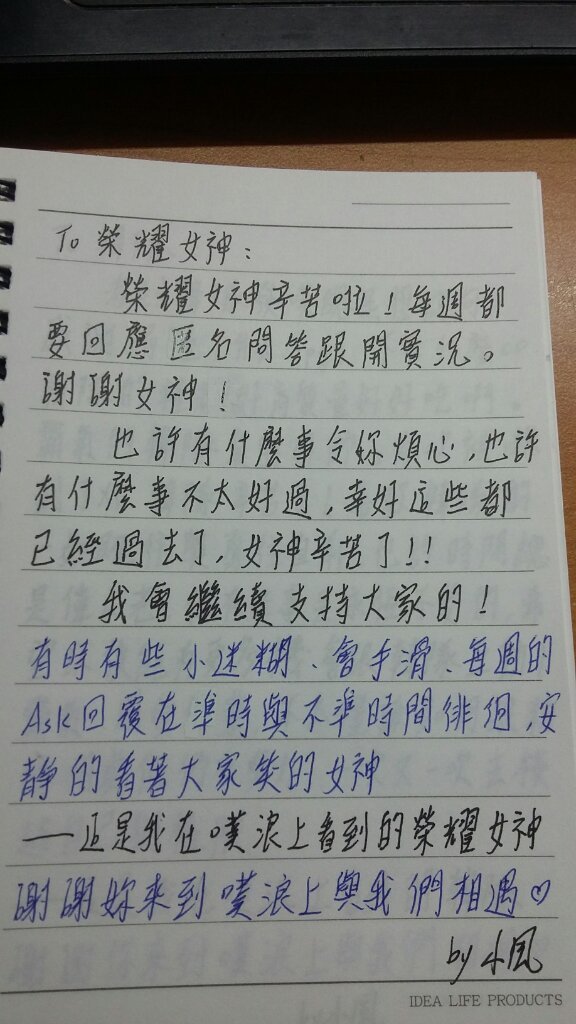 To 榮耀女神：
榮耀女神辛苦啦！每週都
要回應匿名問答跟開實況。
謝謝女神！
也許有什麼事令妳煩心，也許
有什麼事不太好過，幸好這些都
已經過去了，女神辛苦了!!
我會繼續支持大家的！
有時有些小迷糊、會手滑、每週的
Ask回覆在準時與不準時間徘徊，安
靜的看著大家笑的女神
——這是我在噗浪上看到的榮耀女神
謝謝妳來到噗浪上與我們相遇♡
by 小風
IDEA LIFE PRODUCTS